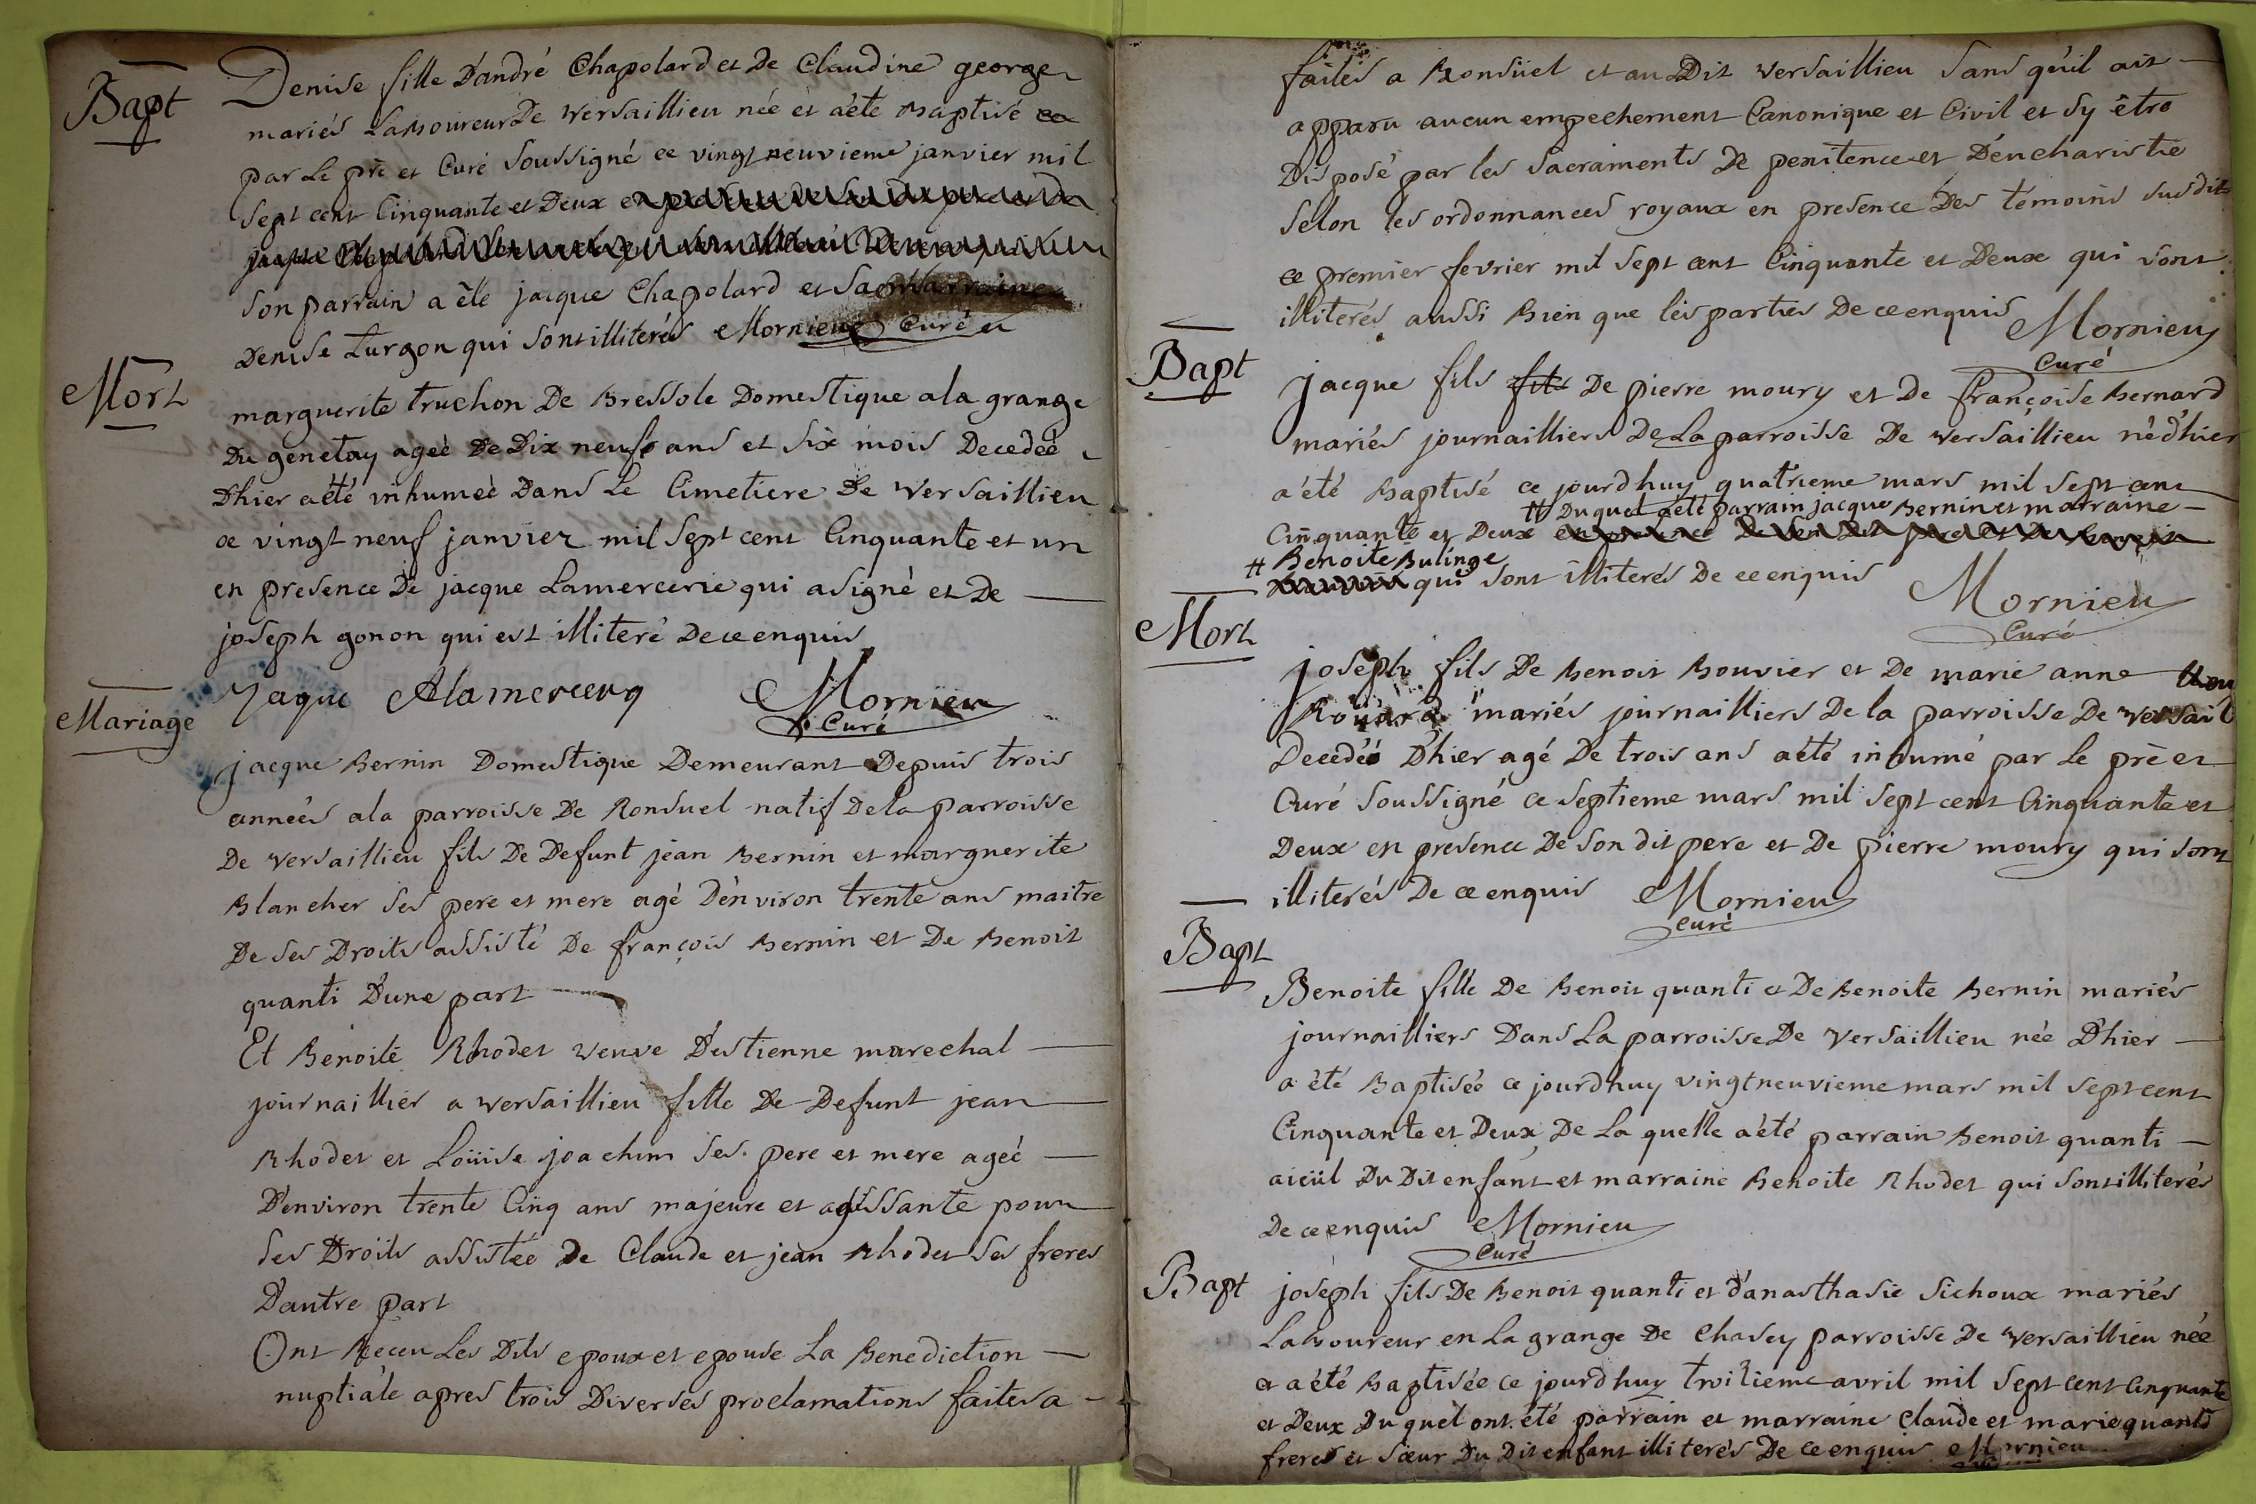 Bapt
Denise fille D'andré Chapolard et De Claudine george
mariés Laboureur De Versaillieu née et a été Baptisé
par Le prê et Curé Soussigné ce vingt neuvieme janvier mil
Sept cent Cinquante et Deux
Son parrain a été jacque Chapolard et Sa marraine
Denise Turgon qui Sont illiterés Mornieu Curé
Mort
marguerite truchon De Bressole Domestique a la grange
Du genetay ageé De Dix neuf ans et Six mois Decedeé
D'hier a été inhumeé Dans Le Cimetiere De Versaillieu
ce vingt neuf janvier mil Sept cent Cinquante et un
en presence De jacque Lamercerie qui a signé et De
joseph gonon qui est illiteré De ce enquis
Jaque Alamercery Mornieu
Curé
Mariage
jacque Bernin Domestique Demeurant Depuis trois
anneés a la parroisse De Ronsuel natif De la parroisse
De Versaillieu fils De Defunt jean Bernin et marguerite
Blancher Ses pere et mere agé D'environ trente ans maitre
De Ses Droits assisté De françois Bernin et De Benoit
quanti D'une part
Et Benoite Rhodet veuve D'estienne marechal
journaillier a versaillieu fille De Defunt jean
Rhodet et Loüise joachim Ses pere et mere ageé
D'environ trente Cinq ans majeure et agissante pour
Ses Droits assistée De Claude et jean Rhodet Ses freres
D'autre part
Ont Receu Les Dits epoux et epouse La Benediction
nuptiale apres trois Diverses proclamations faites a
faites a Ronsüel et au Dit versaillieu Sans qu'il ait
apparu aucun empechement Canonique et Civil et Sy être
Disposé par les Sacraments De penitence et D'eucharistie
Selon les ordonnances royaux en presence Des témoins susdits
ce premier fevrier mil Sept cent Cinquante et Deux qui sont
illiterés aussi Bien que les parties De ce enquis Mornieu
Curé
Bapt
jacque fils fils De pierre moury et De françoise Bernard
mariés journailliers De La parroisse De versaillieu né d'hier
a été Baptisé ce jourdhuy quatrieme mars mil Sept cent
# Du quel a été parrain jacque Bernin et marraine
Cinquante et Deux en presence De Son Dit pere et De
# Benoite Bulinge
qui Sont illiterés De ce enquis Mornieu
Curé
Mort
joseph fils De Benoit Bouvier et De marie anne
Rouard mariés journailliers De la parroisse De versail
Decedéé D'hier agé De trois ans a été inhumé par Le prê et
Curé Soussigné ce Septieme mars mil Sept cent Cinquante et
Deux en presence De Son dit pere et De pierre moury qui sont
illiterés De ce enquis Mornieu
Curé
Bapt
Benoite fille De Benoit quanti et De Benoite Bernin mariés
journailliers Dans La parroisse De Versaillieu née D'hier
a été Baptisée ce jourdhuy vingt neuvieme mars mil Sept cent
Cinquante et Deux De La quelle a été parrain Benoit quanti
aieül Du Dit enfant et marraine Benoite Rhodet qui Sont illiterés
De ce enquis Mornieu
Curé
Bapt
joseph fils De Benoit quanti et d'anasthasie Sichoux mariés
Laboureur en La grange De Chasey parroisse De versaillieu née
et a été Baptisée ce jourdhuy troisieme avril mil Sept cent Cinquante
et Deux Du quel ont été parrain et marraine Claude et marie quanti
freres et Sœur Du Dit enfant illiterés De ce enquis Mornieu